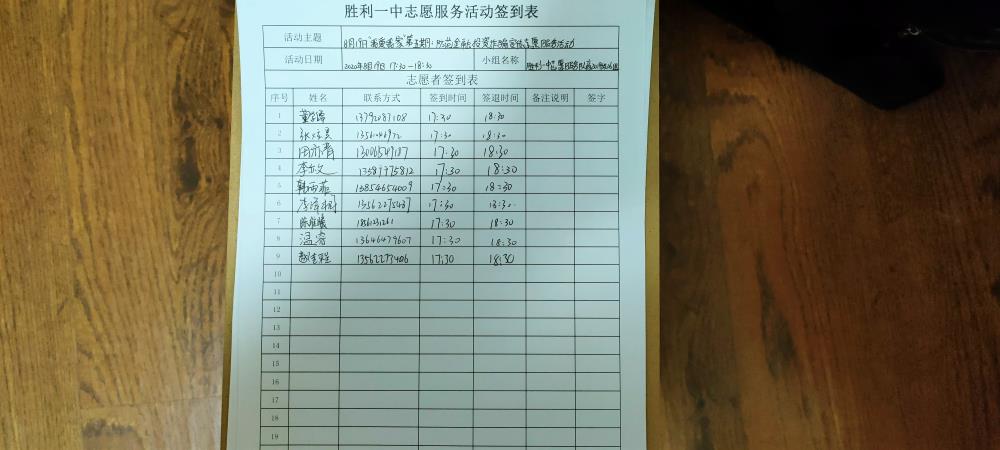 胜利一中志愿服务活动签到表
活动主题 8月19日 第五期: 防范金融投资诈骗宣传志愿服务活动
活动日期 2020年8月19日 17:30-18:30 小组名称 胜利一中志愿服务队
志愿者签到表
序号 姓名 联系方式 签到时间 签退时间 备注说明 签字
1 13792087108 17:30 18:30
2 1356046972 17:30 18:30
3 田亦青 13006549187 17:30 18:30
4 13589975812 17:30 18:30
5 韩雨菲 13854654009 17:30 18:30
6 李泽桐 13562275437 17:30 18:30
7 17:30 18:30
8 温睿 13646479607 17:30 18:30
9 13562277406 17:30 18:30
10
11
12
13
14
15
16
17
18
19